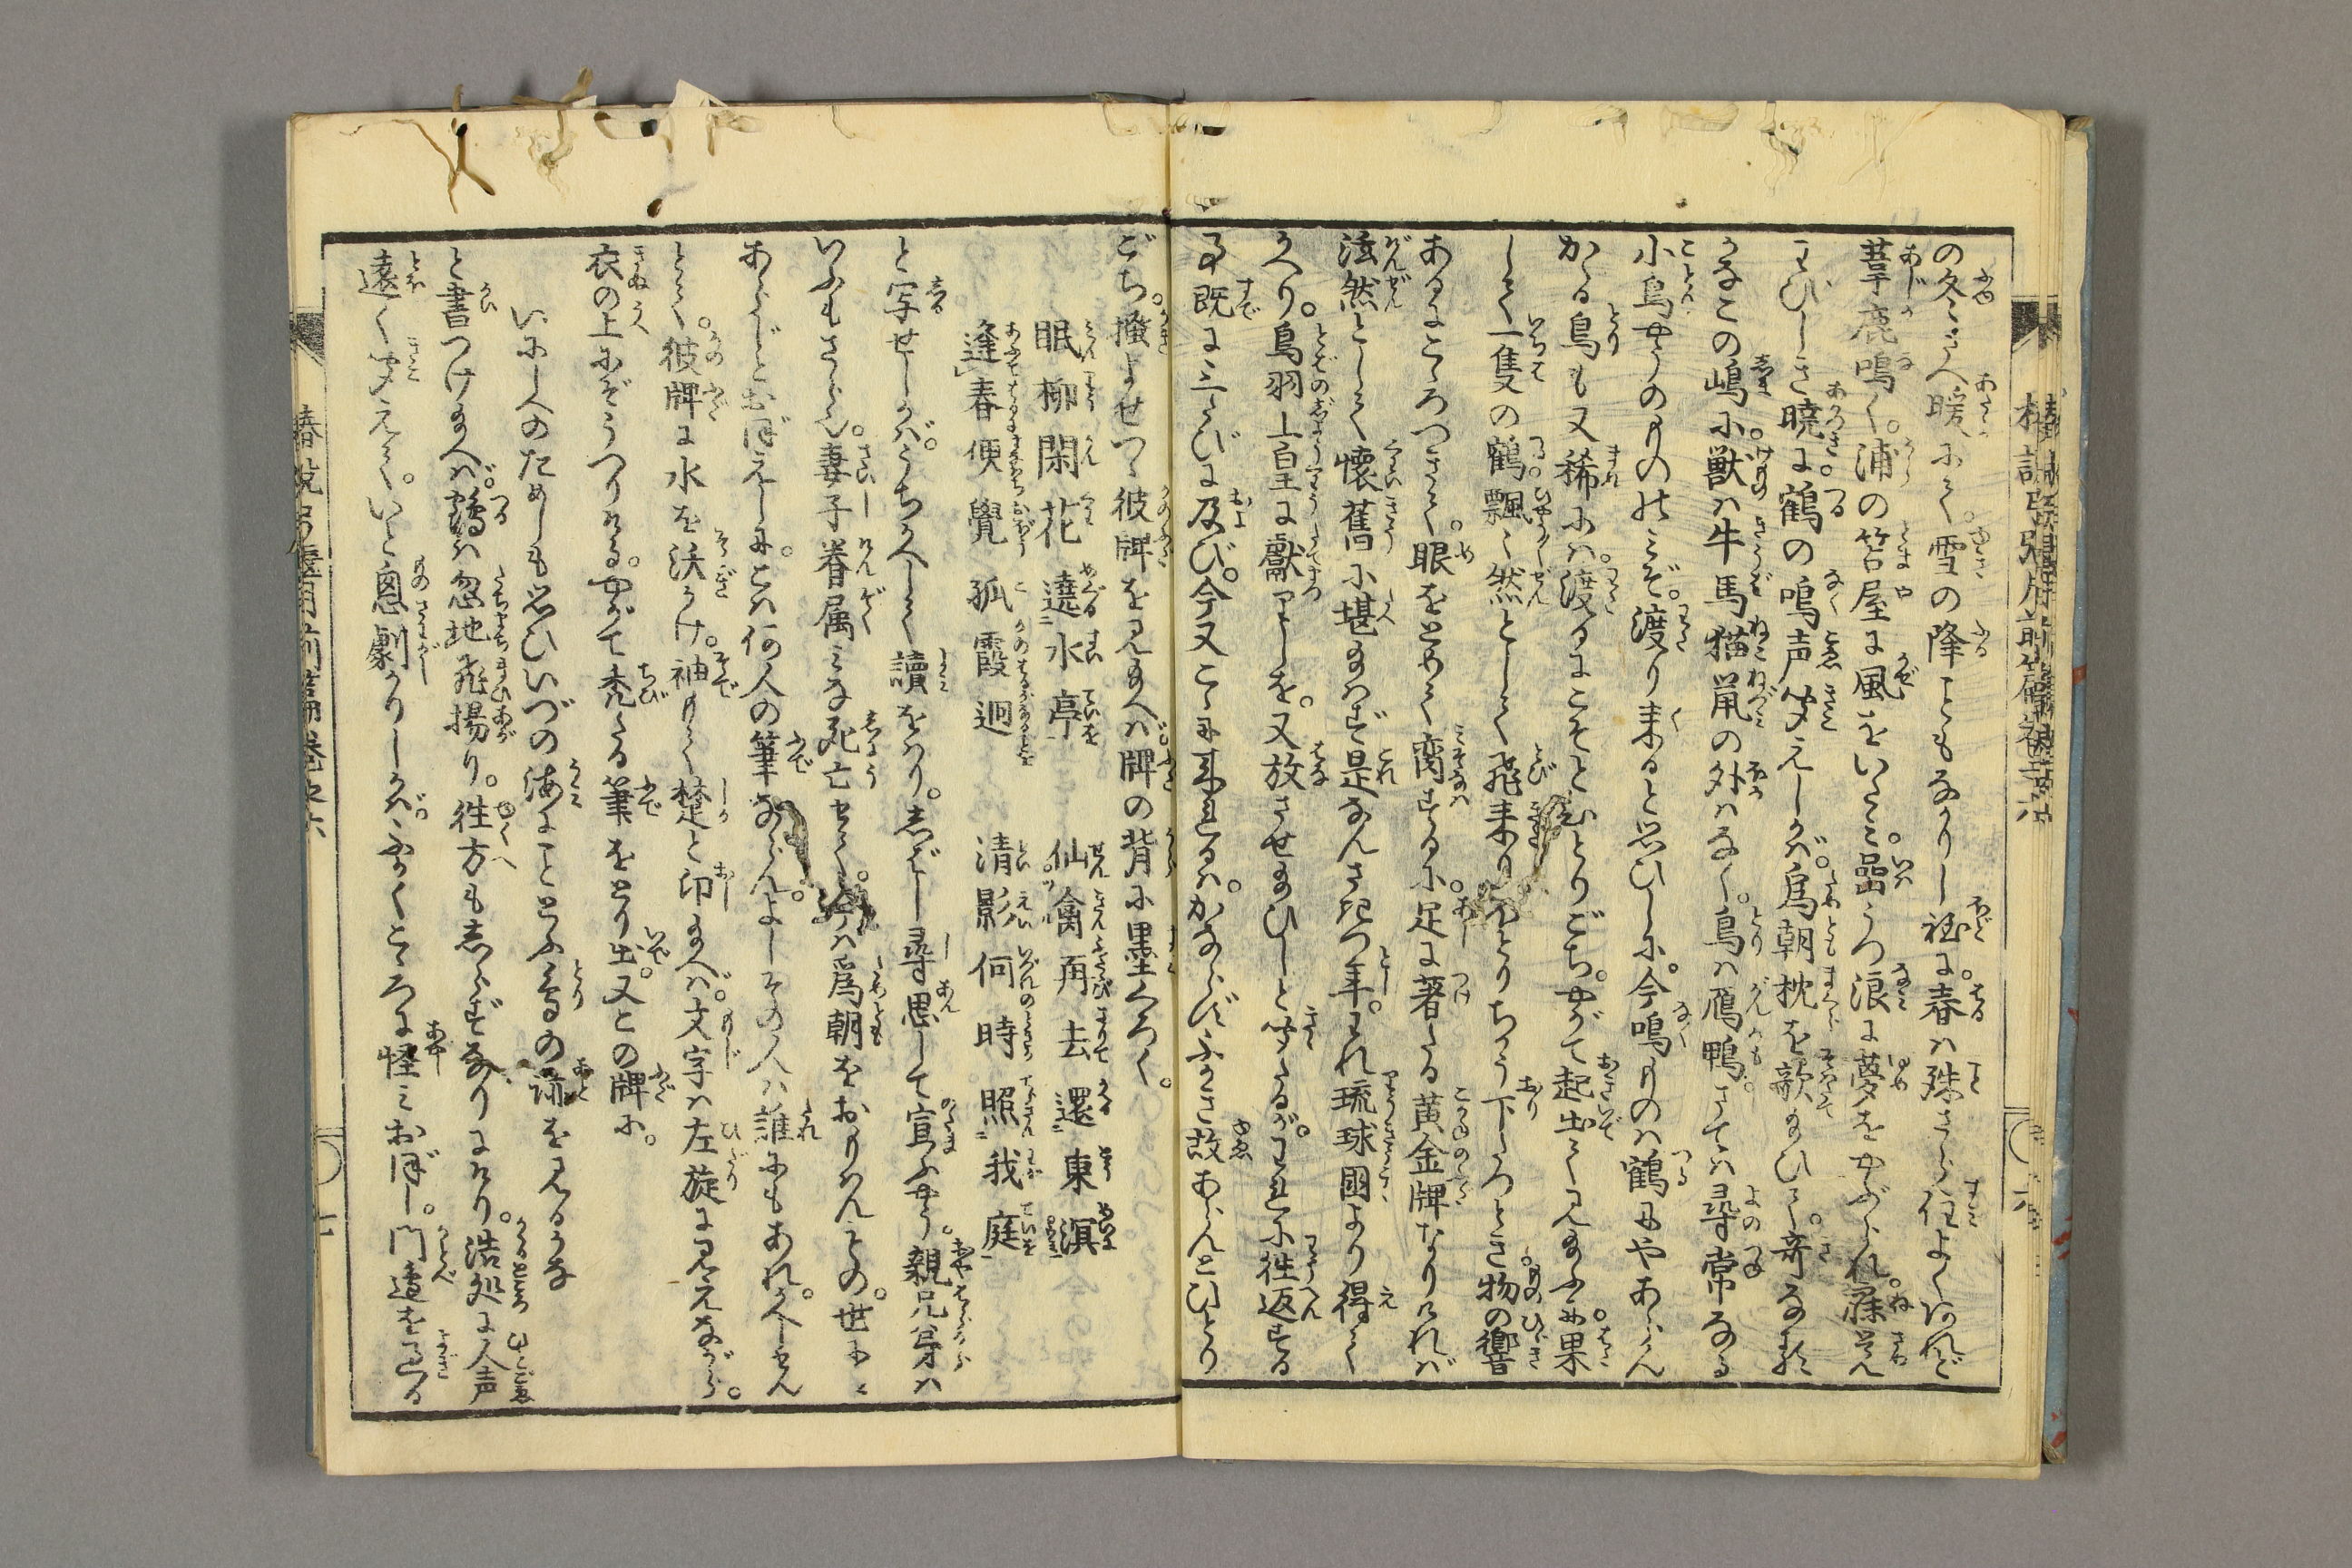 の冬さへ暖にて。雪の降こともなかりし程に。春は殊さら住よくはあれど
葦鹿鳴く。浦の笘屋に風をいたみ。嵒うつ浪に夢をやぶられ。寐覚
わびしき暁に。鶴の鳴声聞えしかば。為朝枕を欹給ひて。奇なるかな
この嶋に。獣は牛馬猫鼠の外はなく。鳥は鴈鴨。さては尋常なる
小鳥やうのもののみぞ。渡り来ると思ひしに。今鳴ものは鶴にやあらん
かゝる鳥も又稀には。渡るにこそとひとりごち。やがて起出て見給ふに。果
して一隻の鶴。飄〻然として飛来り。おとりちかう下たつとき。物の響
あるにこゝろつきて。眼をとめて臠するに。足に著たる黄金牌なりければ
泫然として懐舊に堪給はず。是なんさきつ年。われ琉球國より得て
かへり。鳥羽上皇に獻りしを。又放させ給ひしと聞たるが。われに徃返する
事既に三たびに及び。今又こゝに来れるは。かならずふかき故あらんとひとり
ごち。掻よせつゝ彼牌を見給へば。牌の背に墨くろく。
眠柳閑花遶水亭　仙禽再去還東溟
逢春便覺孤霞迥　清影何時照我庭
と写せしかば。うちかへして讀をはり。しばし尋思して宣ふやう。親兄弟は
いふもさらなり。妻子眷属みな死亡せて。今は為朝をおもはんもの。世に
あらじとおぼえしに。こは何人の筆ならん。よしその人は誰にもあれかしとて
とて。彼牌に水を沃かけ。袖もて楚と印給へば。文字は左旋に見えながら。
衣の上にぞうつりける。やがて禿たる筆をとり出。又この牌に。
いにし人のためしも思ひいづの海にこととふ鳥の跡を見るかな
と書つけ給へば。鶴は忽地飛揚り。徃方もしらずなりにけり。浩処に人声
遠く聞えて。いと怱劇かりしかば。ふかくこゝろに怪みおぼし。門邊を過る